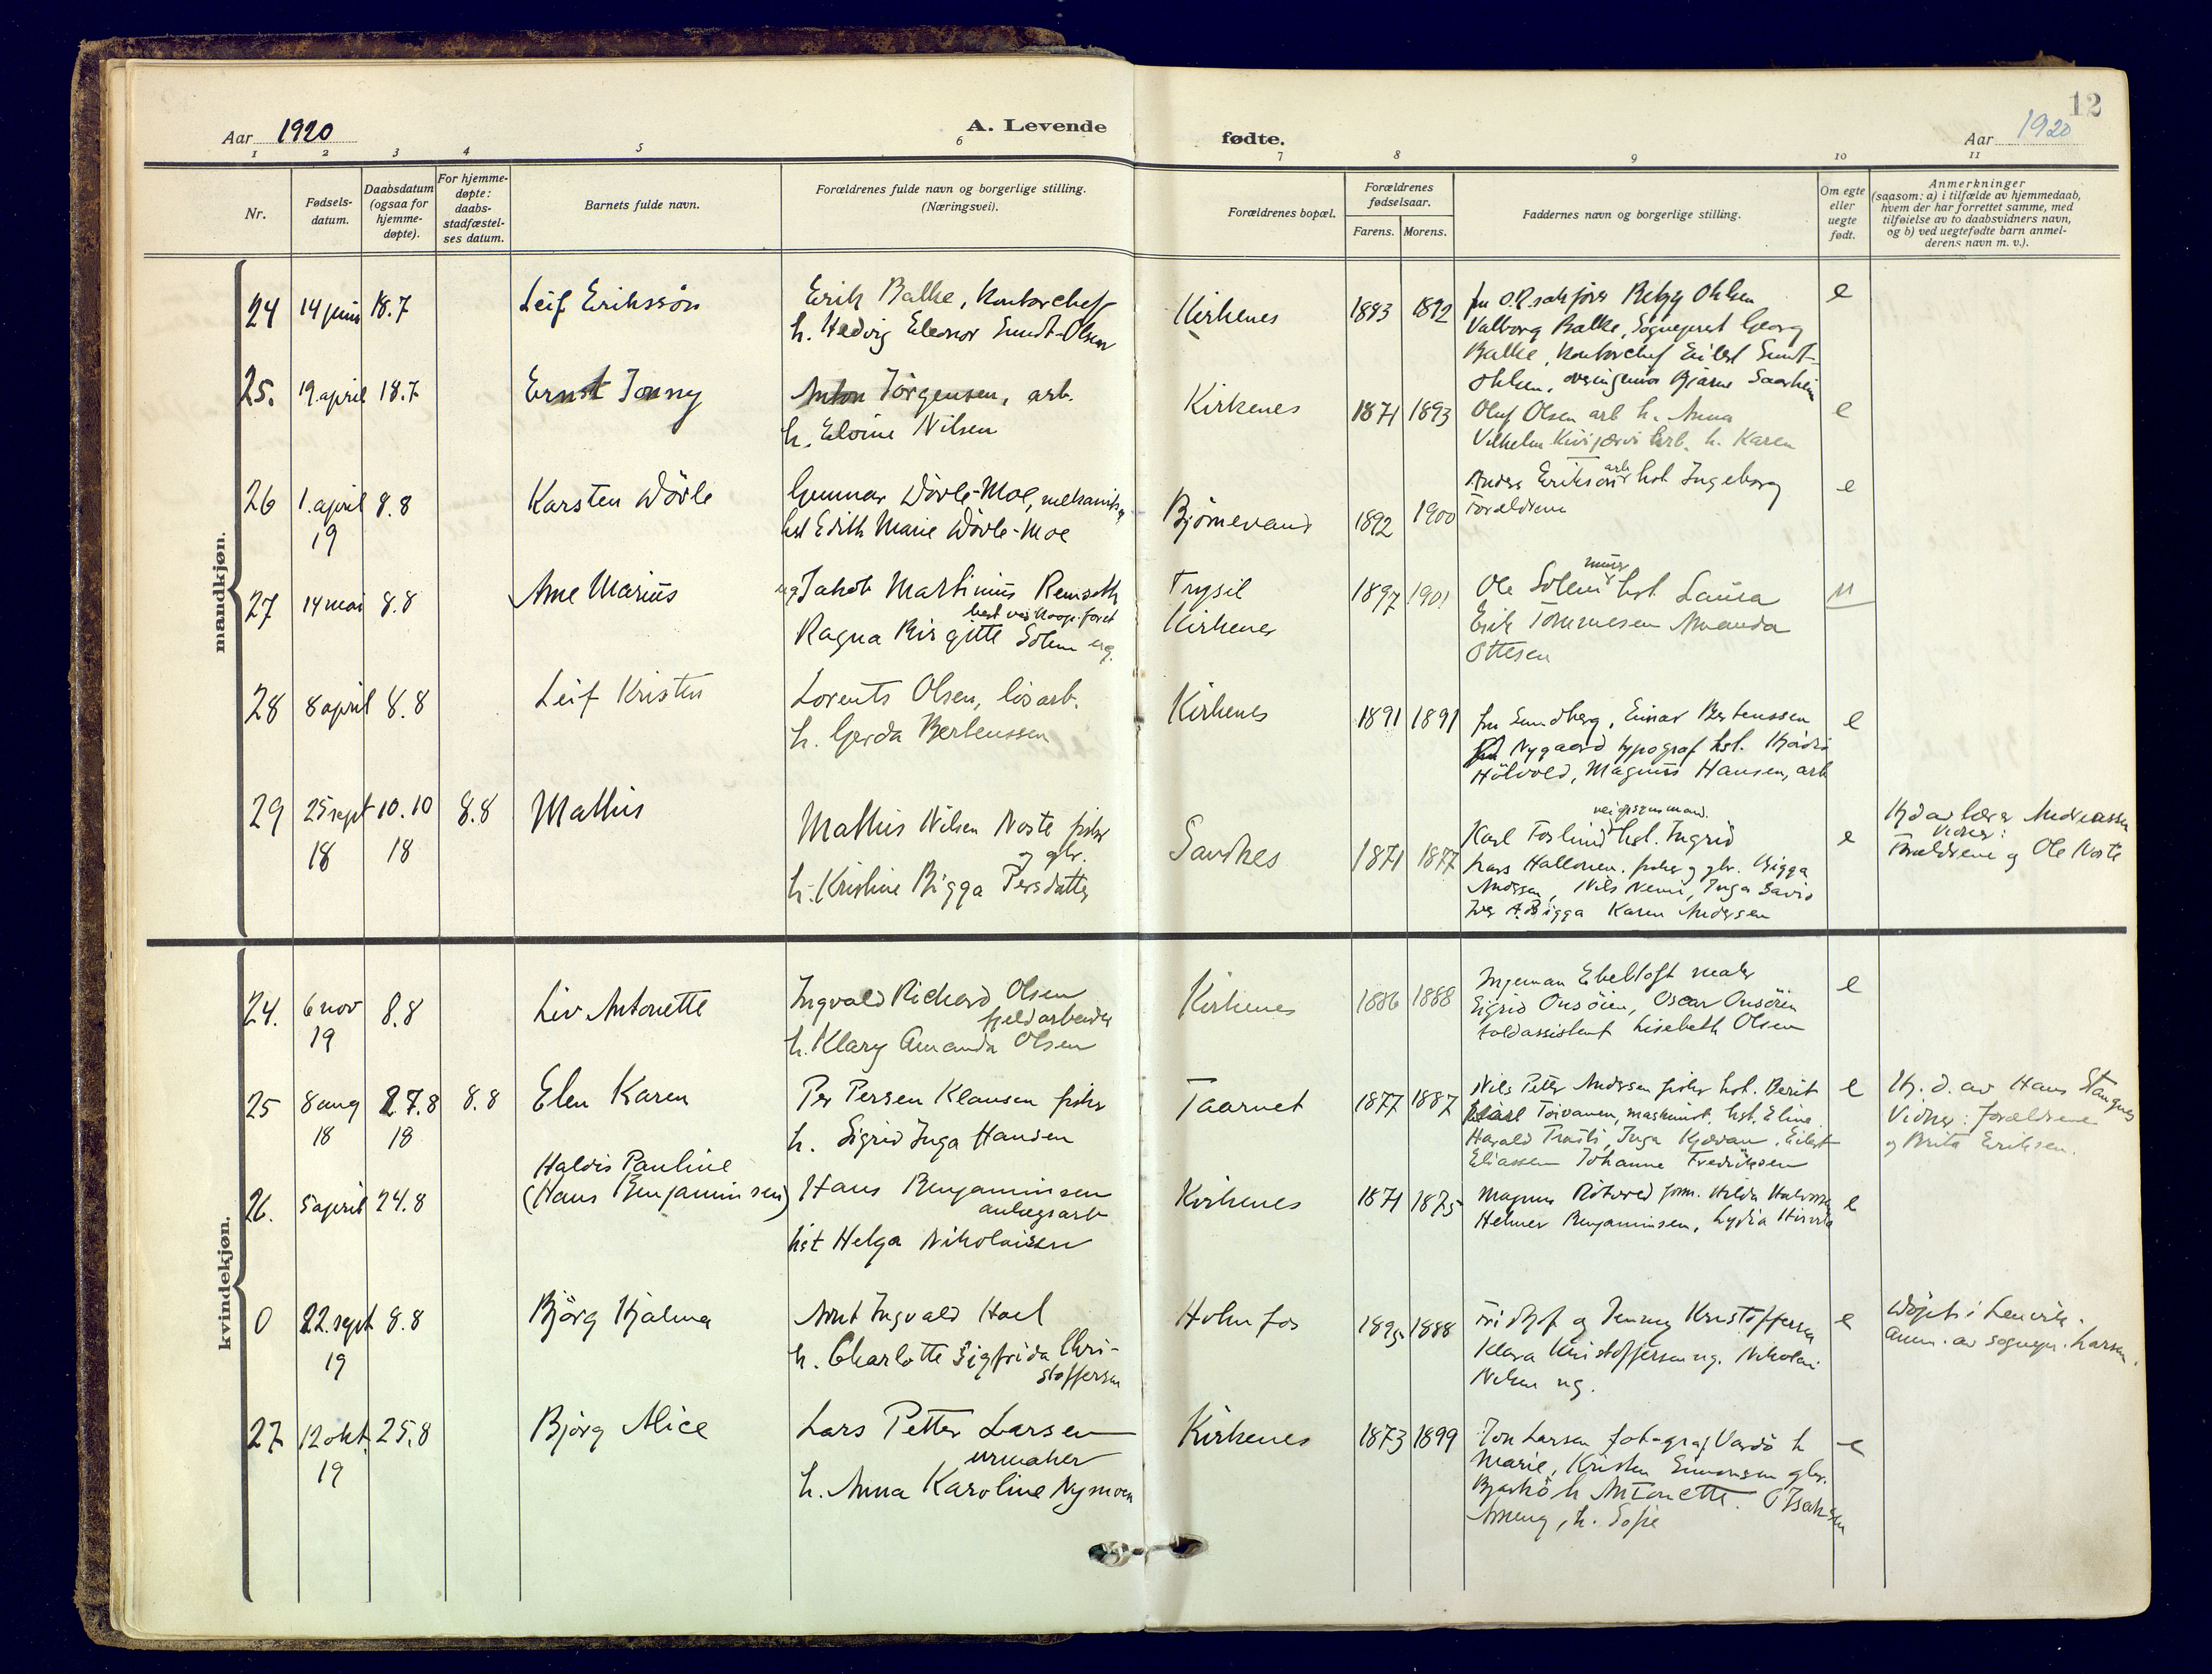 12
Aar 1920
A. Levende fødte.
Aar 1920
1 2 3 4 5 6 7 8 9 10 11
Nr.
Fødsels-
datum.
Daabsdatum
(ogsaa for
hjemme-
døpte).
For hjemme-
døpte:
daabs-
stadfæstel-
ses datum.
Barnets fulde navn.
Forældrenes fulde navn og borgerlige stilling.
(Næringsvei).
Forældrenes bopæl.
Forældrenes
fødselsaar.
Farens. Morens.
Faddernes navn og borgerlige stilling.
Om egte
eller
uegte
født.
Anmerkninger
(saasom: a) i tilfælde av hjemmedaab,
hvem der har forrettet samme, med
tilføielse av to daabsvidners navn,
og b) ved uegtefødte barn anmel-
derens navn m. v.).
mandkjøn.
24 14 juni 18.7 Leif Erikssøn
Erik Balke, kontorchef
h. Hedvig Eleonor Sundt-Olsen
Kirkenes 1883 1892
fru O.R.sakfører Betzy Ohlsen
Valborg Balke, Sogneprest Georg
Balke, kontorchef Eilert Sundt-
Ohlsen, overingeniør Bjarne
e
25. 19. april 18.7 Ernst Jonny
Anton Jörgensen, arb.
h. Elvine Nilsen
Kirkenes 1871 1893
Oluf Olsen arb h. Anna
Vilhelm Kivijærvi arb. h. Karen
e
26 1. april 8.8 Karsten Dövle
19
Gunnar Dövle-Moe, mekaniker
hst Edith Marie Dövle-Moe
Bjørnevand 1892 1900
Anders Erikson arb hst Ingeborg
Forældrene
e
27 14 mai 8.8 Arne Marius
ug Jakob Martinus Remseth
best ved Koop. foret
Ragna Birgitte Solem ug.
Trysil
Kirkenes
1897 1901
Ole Solem murer hst Laura
Erik Tommesen Amanda
Ottesen
u
28 8 april 8.8 Leif Kristen
Lorents Olsen, lösarb.
h. Gerda Bertenssen
Kirkenes 1891 1891
fru Sundberg, Einar Bertenssen
Nygaard typograf hst.
Hölvold, Magnus Hansen, arb
e
29 25 sept 10.10 8.8 Mathis
18 18
Mathis Nilsen Noste fisker
og gbr.
h. Kristine Bigga Persdatter
Sandnes 1871 1877
Karl Foslund hst. Ingrid
Lars Hallonen. fisker og gbr. Bigga
Andersen, Nils Nemi, Inga Savio
Karen Andersen
e
Hjd av lærer Andreassen
Vidner:
Forældrene og Ole Noste
kvindekjøn.
24. 6 nov 8.8 Liv Antonette
19
Ingvald Richard Olsen
fjeldarbeider
h. Klary Amanda Olsen
Kirkenes 1886 1888
Ingeman Ebeltoft maler
Sigrid Onsöien, Oscar Onsöien
toldassistent Lisebeth Olsen
e
25 8 aug 27.8 8.8 Elen Karen
18 18
Per Persen Klausen fisker
h. Sigrid Inga Hansen
Taarnet 1877 1887
Nils Petter Andersen fisker hst. Berit
Toivanen, maskinist, hst. Eline
Harald Trasti, Inga Kjærran, Eilert
Eliassen Johanne Fredriksen
e
Hj. d. av Hans Stangnes
Vidner: forældrene
og Brita Eriksen.
26. 5 april 24.8 Haldis Pauline
(Hans Benjaminsen)
Hans Benjaminsen
anlegsarb
hst Helga Nikolaisen
Kirkenes 1871 1875
Magnus Rötvold form. Hilda Halvorsen
Helmer Benjaminsen, Lydia
e
0 22. sept 8.8 Björg Hjalma
19
Arnt Ingvald Hoel
h. Charlotte Sigfrida Chri-
stoffersen
Holmfos 1895 1888
Fridhjof og Jenny Kristoffersen
Klara Kristoffersen ug. Nikolai
Nilsen ug.
e
Döpt i Lenvik.
Anm. av sognepr. Larsen.
27 12 okt. 25.8 Björg Alice
19
Lars Petter Larsen
urmaker
h. Anna Karoline Nymoen
Kirkenes 1873 1899
Jon Larsen fotograf Vardö h
Marie, Kristen Simonsen gbr.
Bjarkö h Antonette. O Isaksen
h. Sofie
e